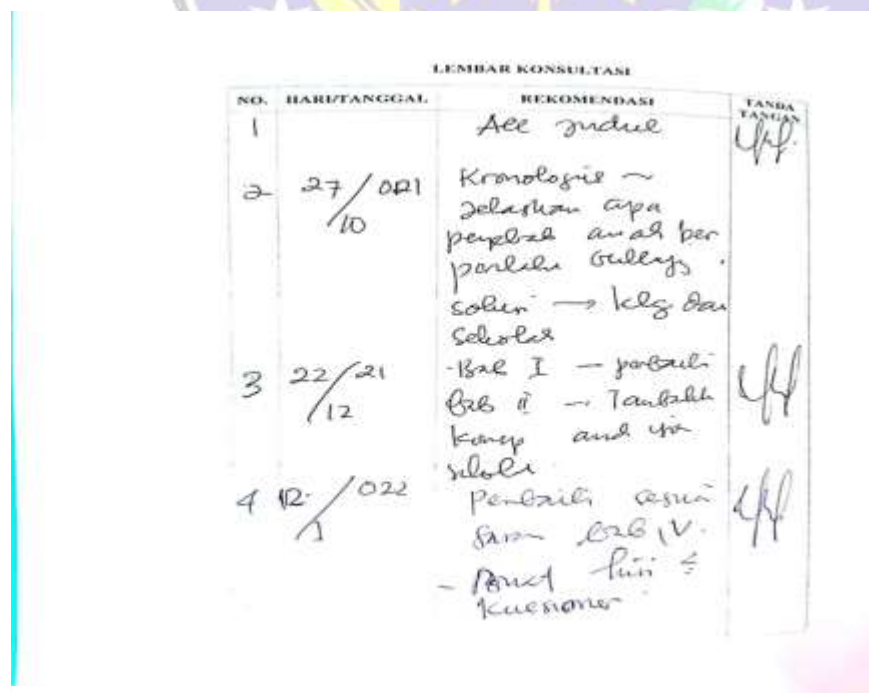 LEMBAR KONSULTASI
NO. HARI/TANGGAL REKOMENDASI TANDA TANGAN
1 Acc Judul
2 27/10 021 Kronologis ~
Jelaskan apa
penyebab anak ber
perilaku bullying.
solusi → klg dan
sekolah
3 22/12 21 - Bab I — perbaiki
Bab II — Tambahkan
konsep anak usia
sekolah
4 12/1 022 Perbaiki sesuai
saran bab IV.
-
Kuesioner